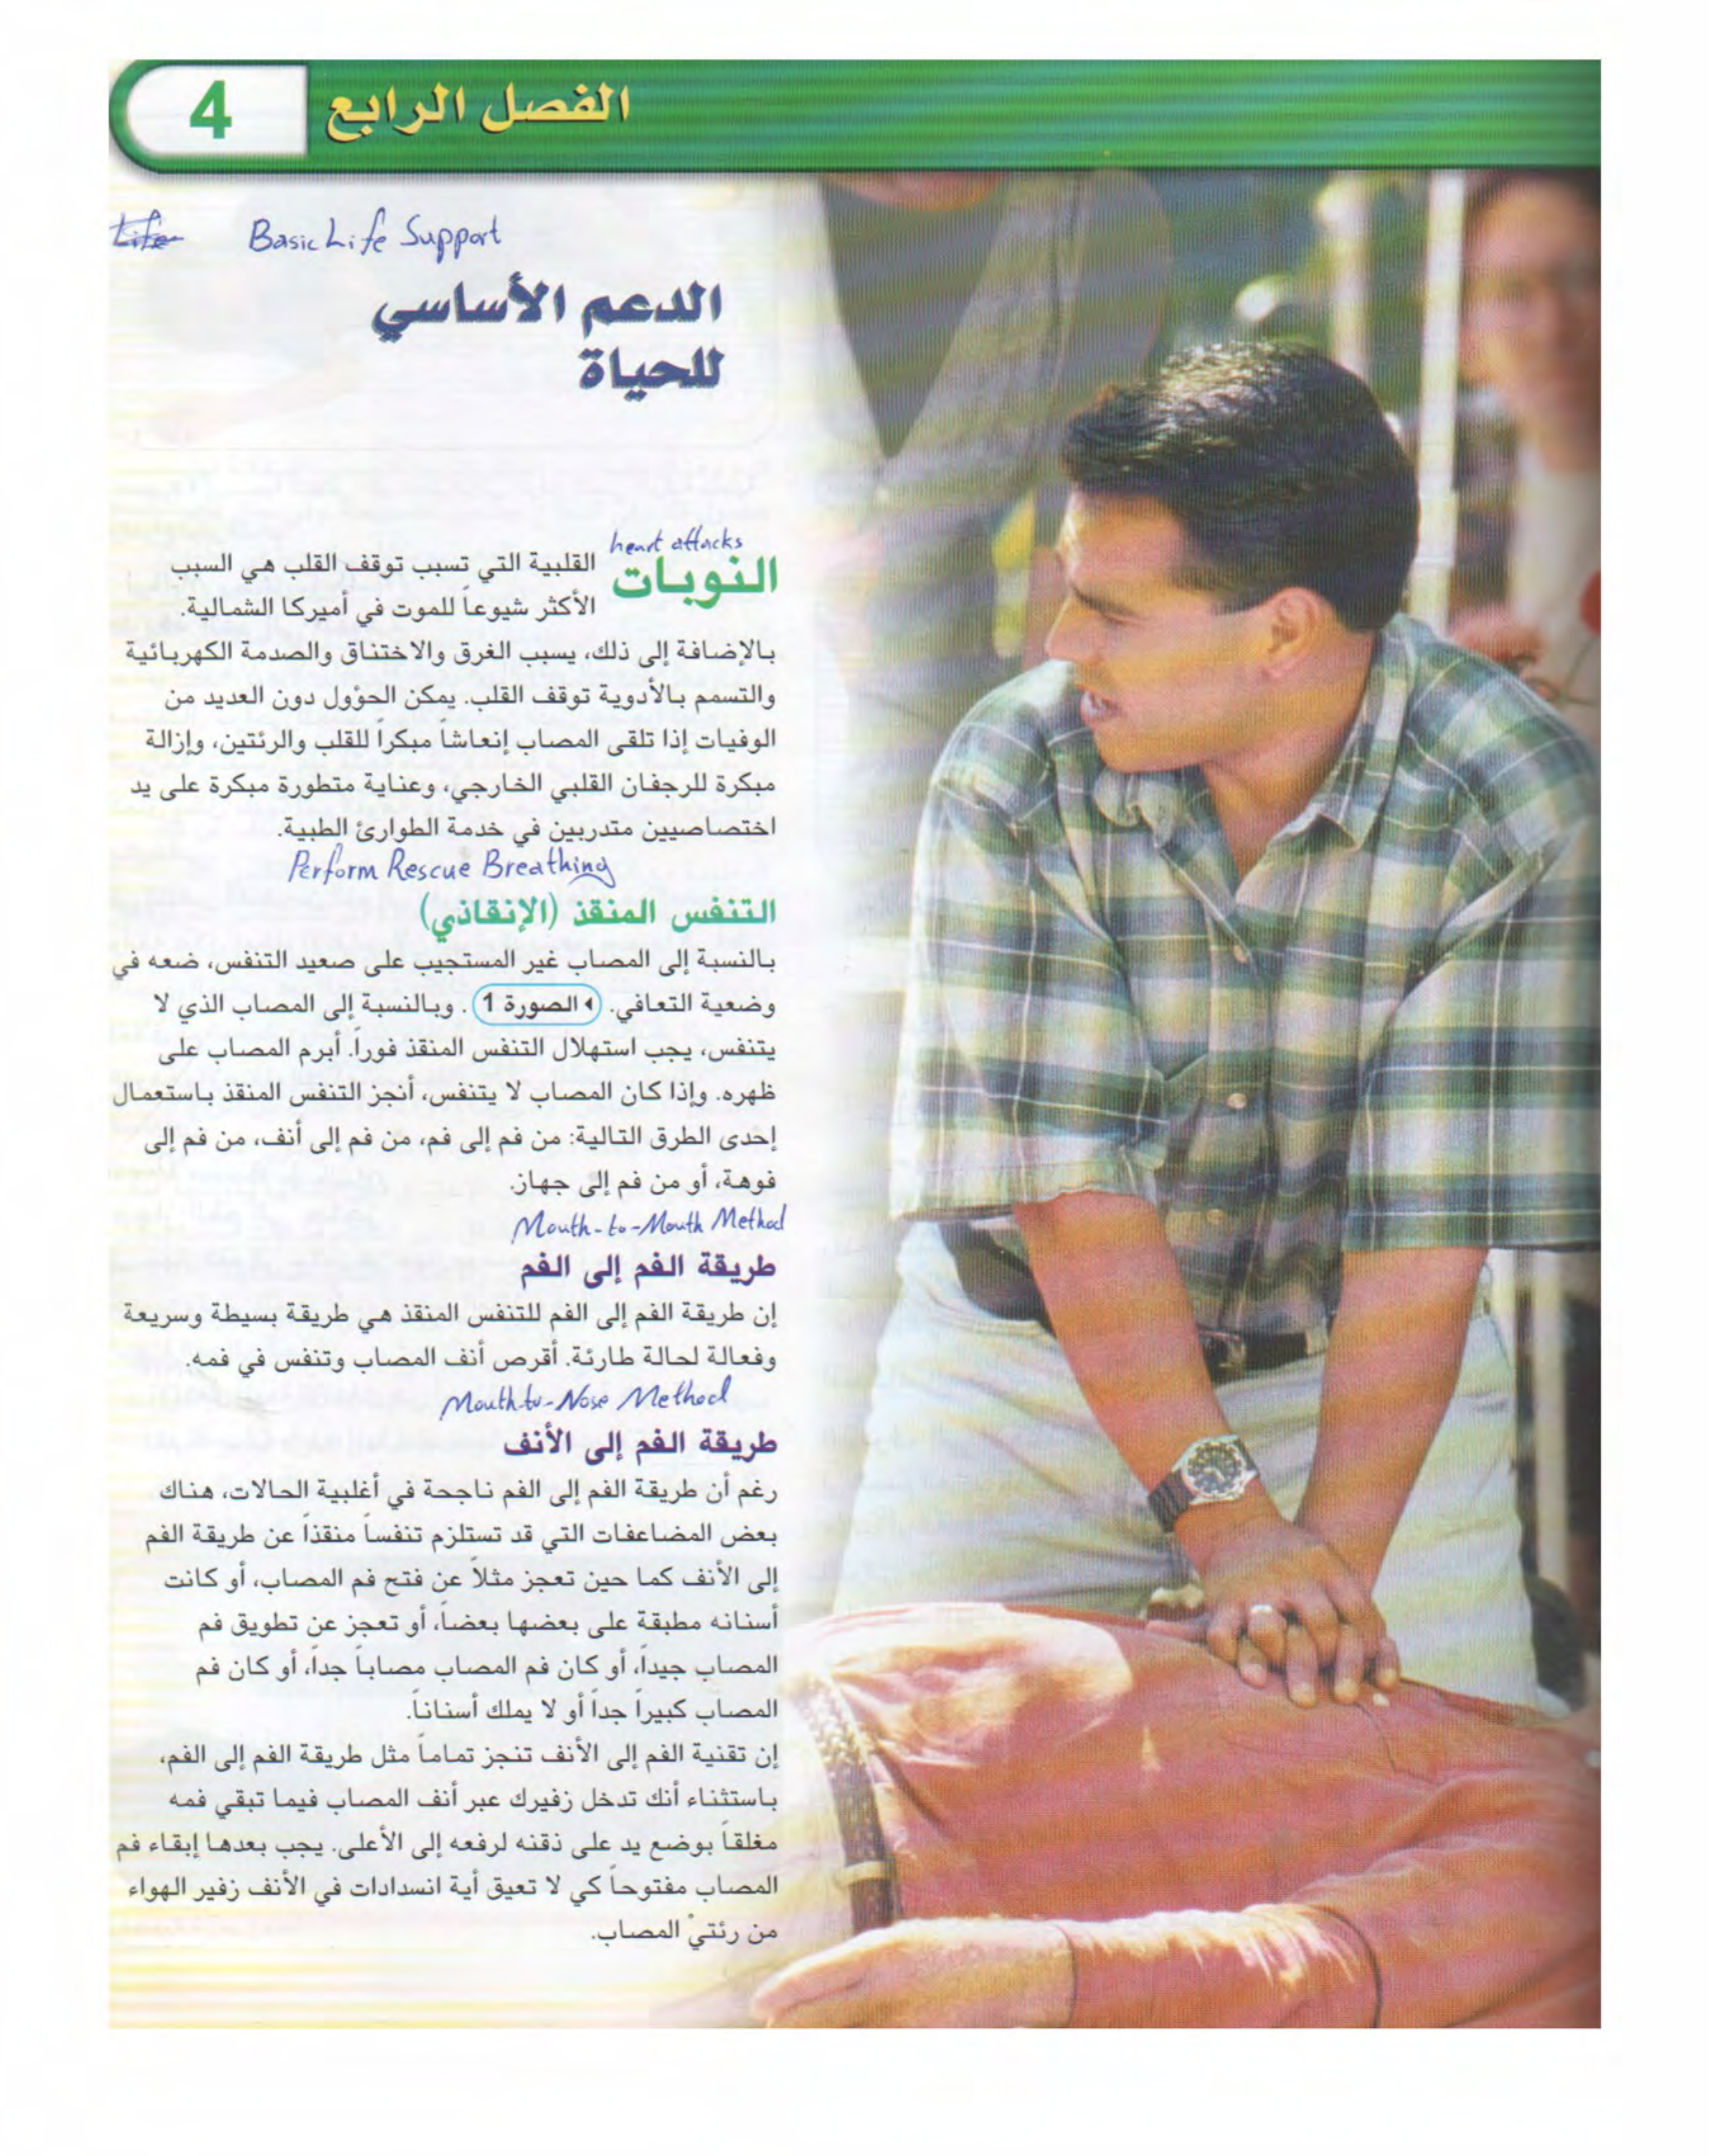 الفصل الرابع 4
Life Basic Life Support
الدعم الأساسي
للحياة
heart attacks
النوبات القلبية التي تسبب توقف القلب هي السبب
الأكثر شيوعاً للموت في أميركا الشمالية.
بالإضافة إلى ذلك، يسبب الغرق والاختناق والصدمة الكهربائية
والتسمم بالأدوية توقف القلب. يمكن الحؤول دون العديد من
الوفيات إذا تلقى المصاب إنعاشاً مبكراً للقلب والرئتين، وإزالة
مبكرة للرجفان القلبي الخارجي، وعناية متطورة مبكرة على يد
اختصاصيين متدربين في خدمة الطوارئ الطبية.
Perform Rescue Breathing
التنفس المنقذ (الإنقاذي)
بالنسبة إلى المصاب غير المستجيب على صعيد التنفس، ضعه في
وضعية التعافي. الصورة 1. وبالنسبة إلى المصاب الذي لا
يتنفس، يجب استهلال التنفس المنقذ فوراً. أبرم المصاب على
ظهره. وإذا كان المصاب لا يتنفس، أنجز التنفس المنقذ باستعمال
إحدى الطرق التالية: من فم إلى فم، من فم إلى أنف، من فم إلى
فوهة، أو من فم إلى جهاز.
Mouth-to-Mouth Method
طريقة الفم إلى الفم
إن طريقة الفم إلى الفم للتنفس المنقذ هي طريقة بسيطة وسريعة
وفعالة لحالة طارئة. أقرص أنف المصاب وتنفس في فمه.
Mouth-to-Nose Method
طريقة الفم إلى الأنف
رغم أن طريقة الفم إلى الفم ناجحة في أغلبية الحالات، هناك
بعض المضاعفات التي قد تستلزم تنفساً منقذاً عن طريقة الفم
إلى الأنف كما حين تعجز مثلاً عن فتح فم المصاب، أو كانت
أسنانه مطبقة على بعضها بعضاً، أو تعجز عن تطويق فم
المصاب جيداً، أو كان فم المصاب مصاباً جداً، أو كان فم
المصاب كبيراً جداً أو لا يملك أسناناً.
إن تقنية الفم إلى الأنف تنجز تماماً مثل طريقة الفم إلى الفم،
باستثناء أنك تدخل زفيرك عبر أنف المصاب فيما تبقي فمه
مغلقاً بوضع يد على ذقنه لرفعه إلى الأعلى. يجب بعدها إبقاء فم
المصاب مفتوحاً كي لا تعيق أية انسدادات في الأنف زفير الهواء
من رئتيْ المصاب.